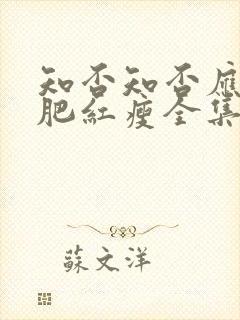 知否知否應
肥紅瘦全集
蘇文洋